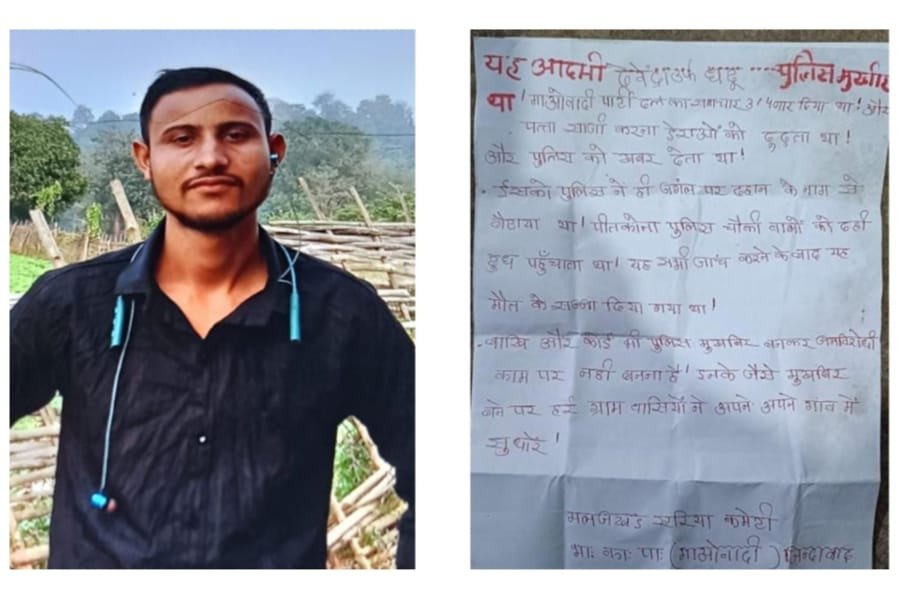 यह आदमी देवेंद्र उर्फ धदू पुलिस मुखबीर
था! माओवादी पार्टी दल का समाचार दिया था! और
पत्ता सार्गी करना डेराओं को ढुढता था!
और पुलिस को खबर देता था!
ईसको पुलिस ने ही जगंल पर दहान के भाग से
बैठाया था! पीतकोना पुलिस चौकी वालों को दही
दुध पहुँचाता था! यह सभी जांच करने के बाद यह
मौत के सज्जा दिया गया था!
बाखि और कोई भी पुलिस मुखबिर बनकर जनविरोधी
काम पर नही बनना है! इनके जैसे मुखबिर
बने पर हर ग्राम वासियों ने अपने अपने गांव में
सुधारें!
मलाजखंड एरिया कमेटी
भाः काः पाः (माओवादी) जिन्दाबाद